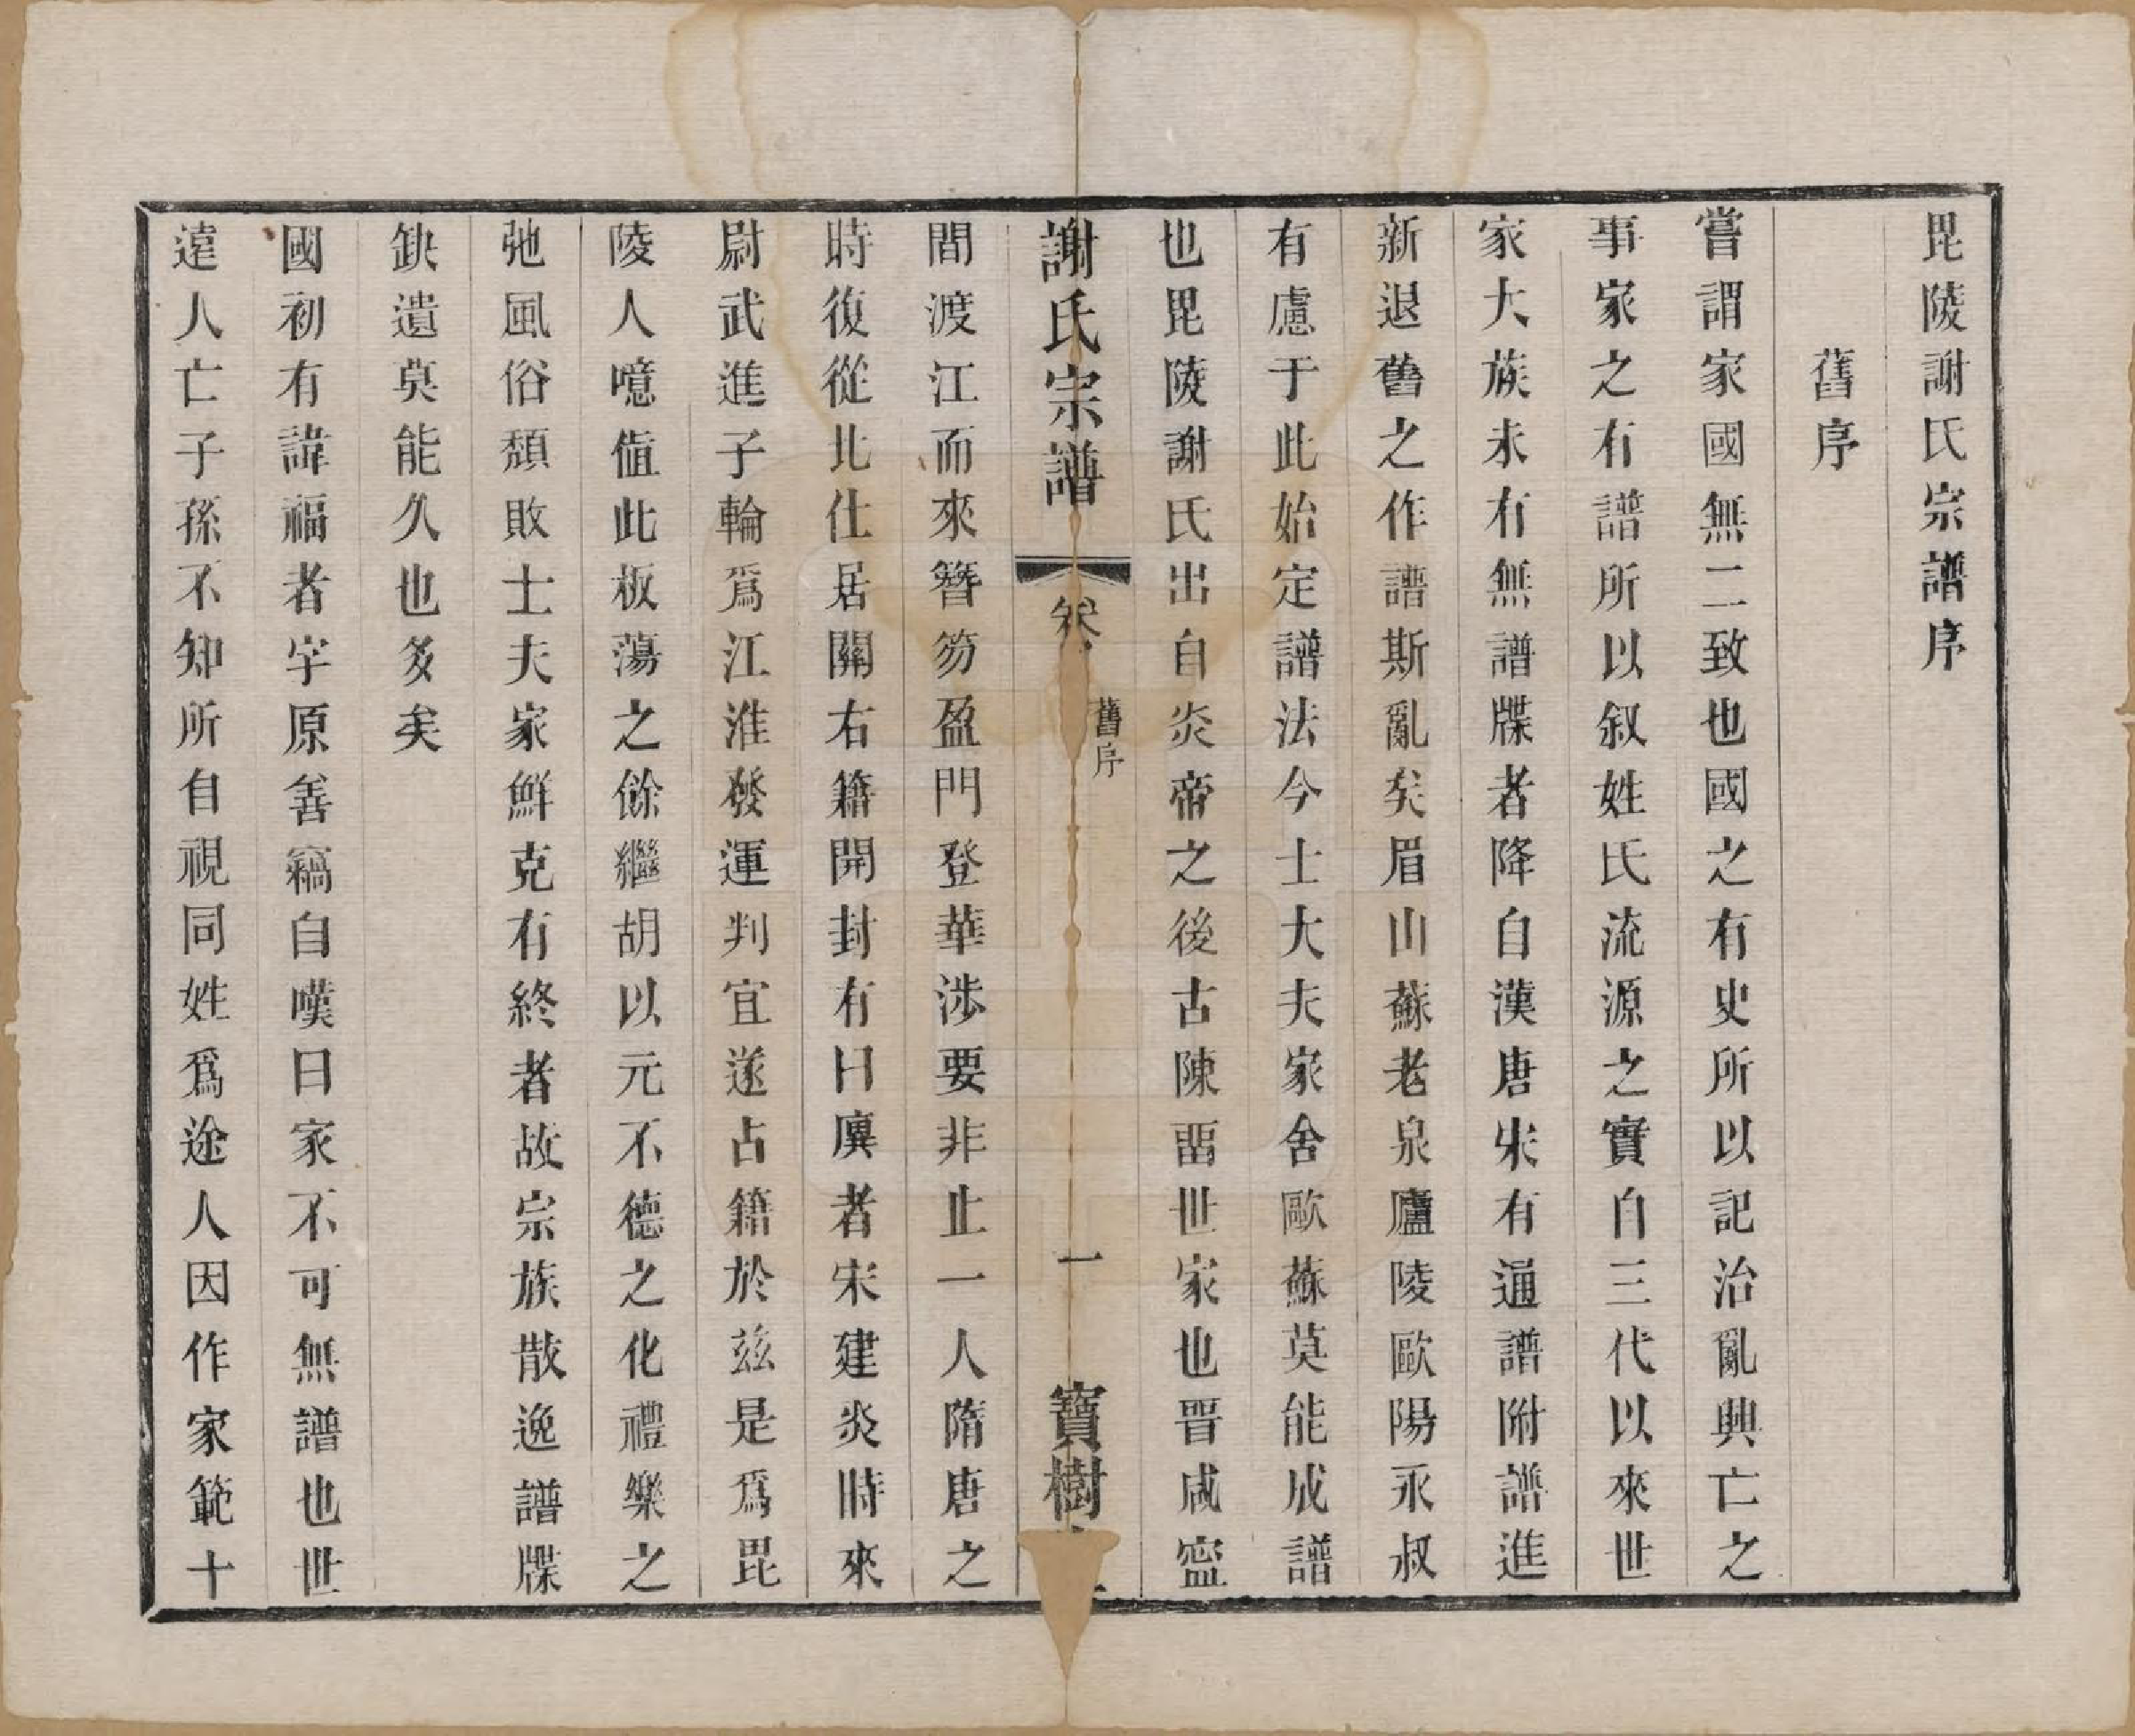 毘陵謝氏宗譜序
舊序
嘗謂家國無二致也國之有史所以記治亂興亡之
事家之有譜所以叙姓氏流源之實自三代以來世
家大族未有無譜牒者降自漢唐宋有通譜附譜進
新退舊之作譜斯亂矣眉山蘇老泉廬陵歐陽永叔
有慮于此始定譜法今士大夫家舍歐蘇莫能成譜
也毘陵謝氏出自炎帝之後古陳畱世家也晋咸寍
謝氏宗譜
卷
舊序
一
寶樹
間渡江而來簪笏盈門登華涉要非止一人隋唐之
時復從北仕居關右籍開封有曰廙者宋建炎時來
尉武進子輪爲江淮發運判宜遂占籍於兹是爲毘
陵人噫値此板蕩之餘繼胡以元不德之化禮樂之
弛風俗頹敗士夫家鮮克有終者故宗族散逸譜牒
缺遺莫能久也多矣
國初有諱福者字原善竊自嘆曰家不可無譜也世
遠人亡子孫不知所自視同姓爲途人因作家範十